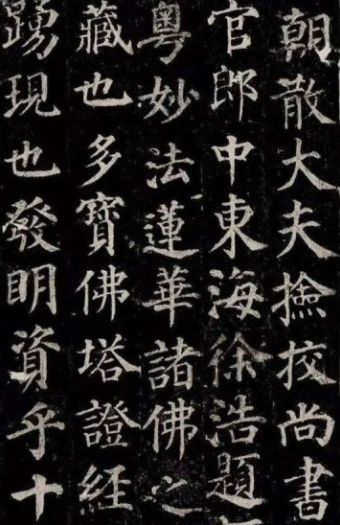 朝散大夫撿挍尚書
官郎中東海徐浩題
粵妙法蓮華諸佛之
藏也多寶佛塔證經
踴現也發明資乎十